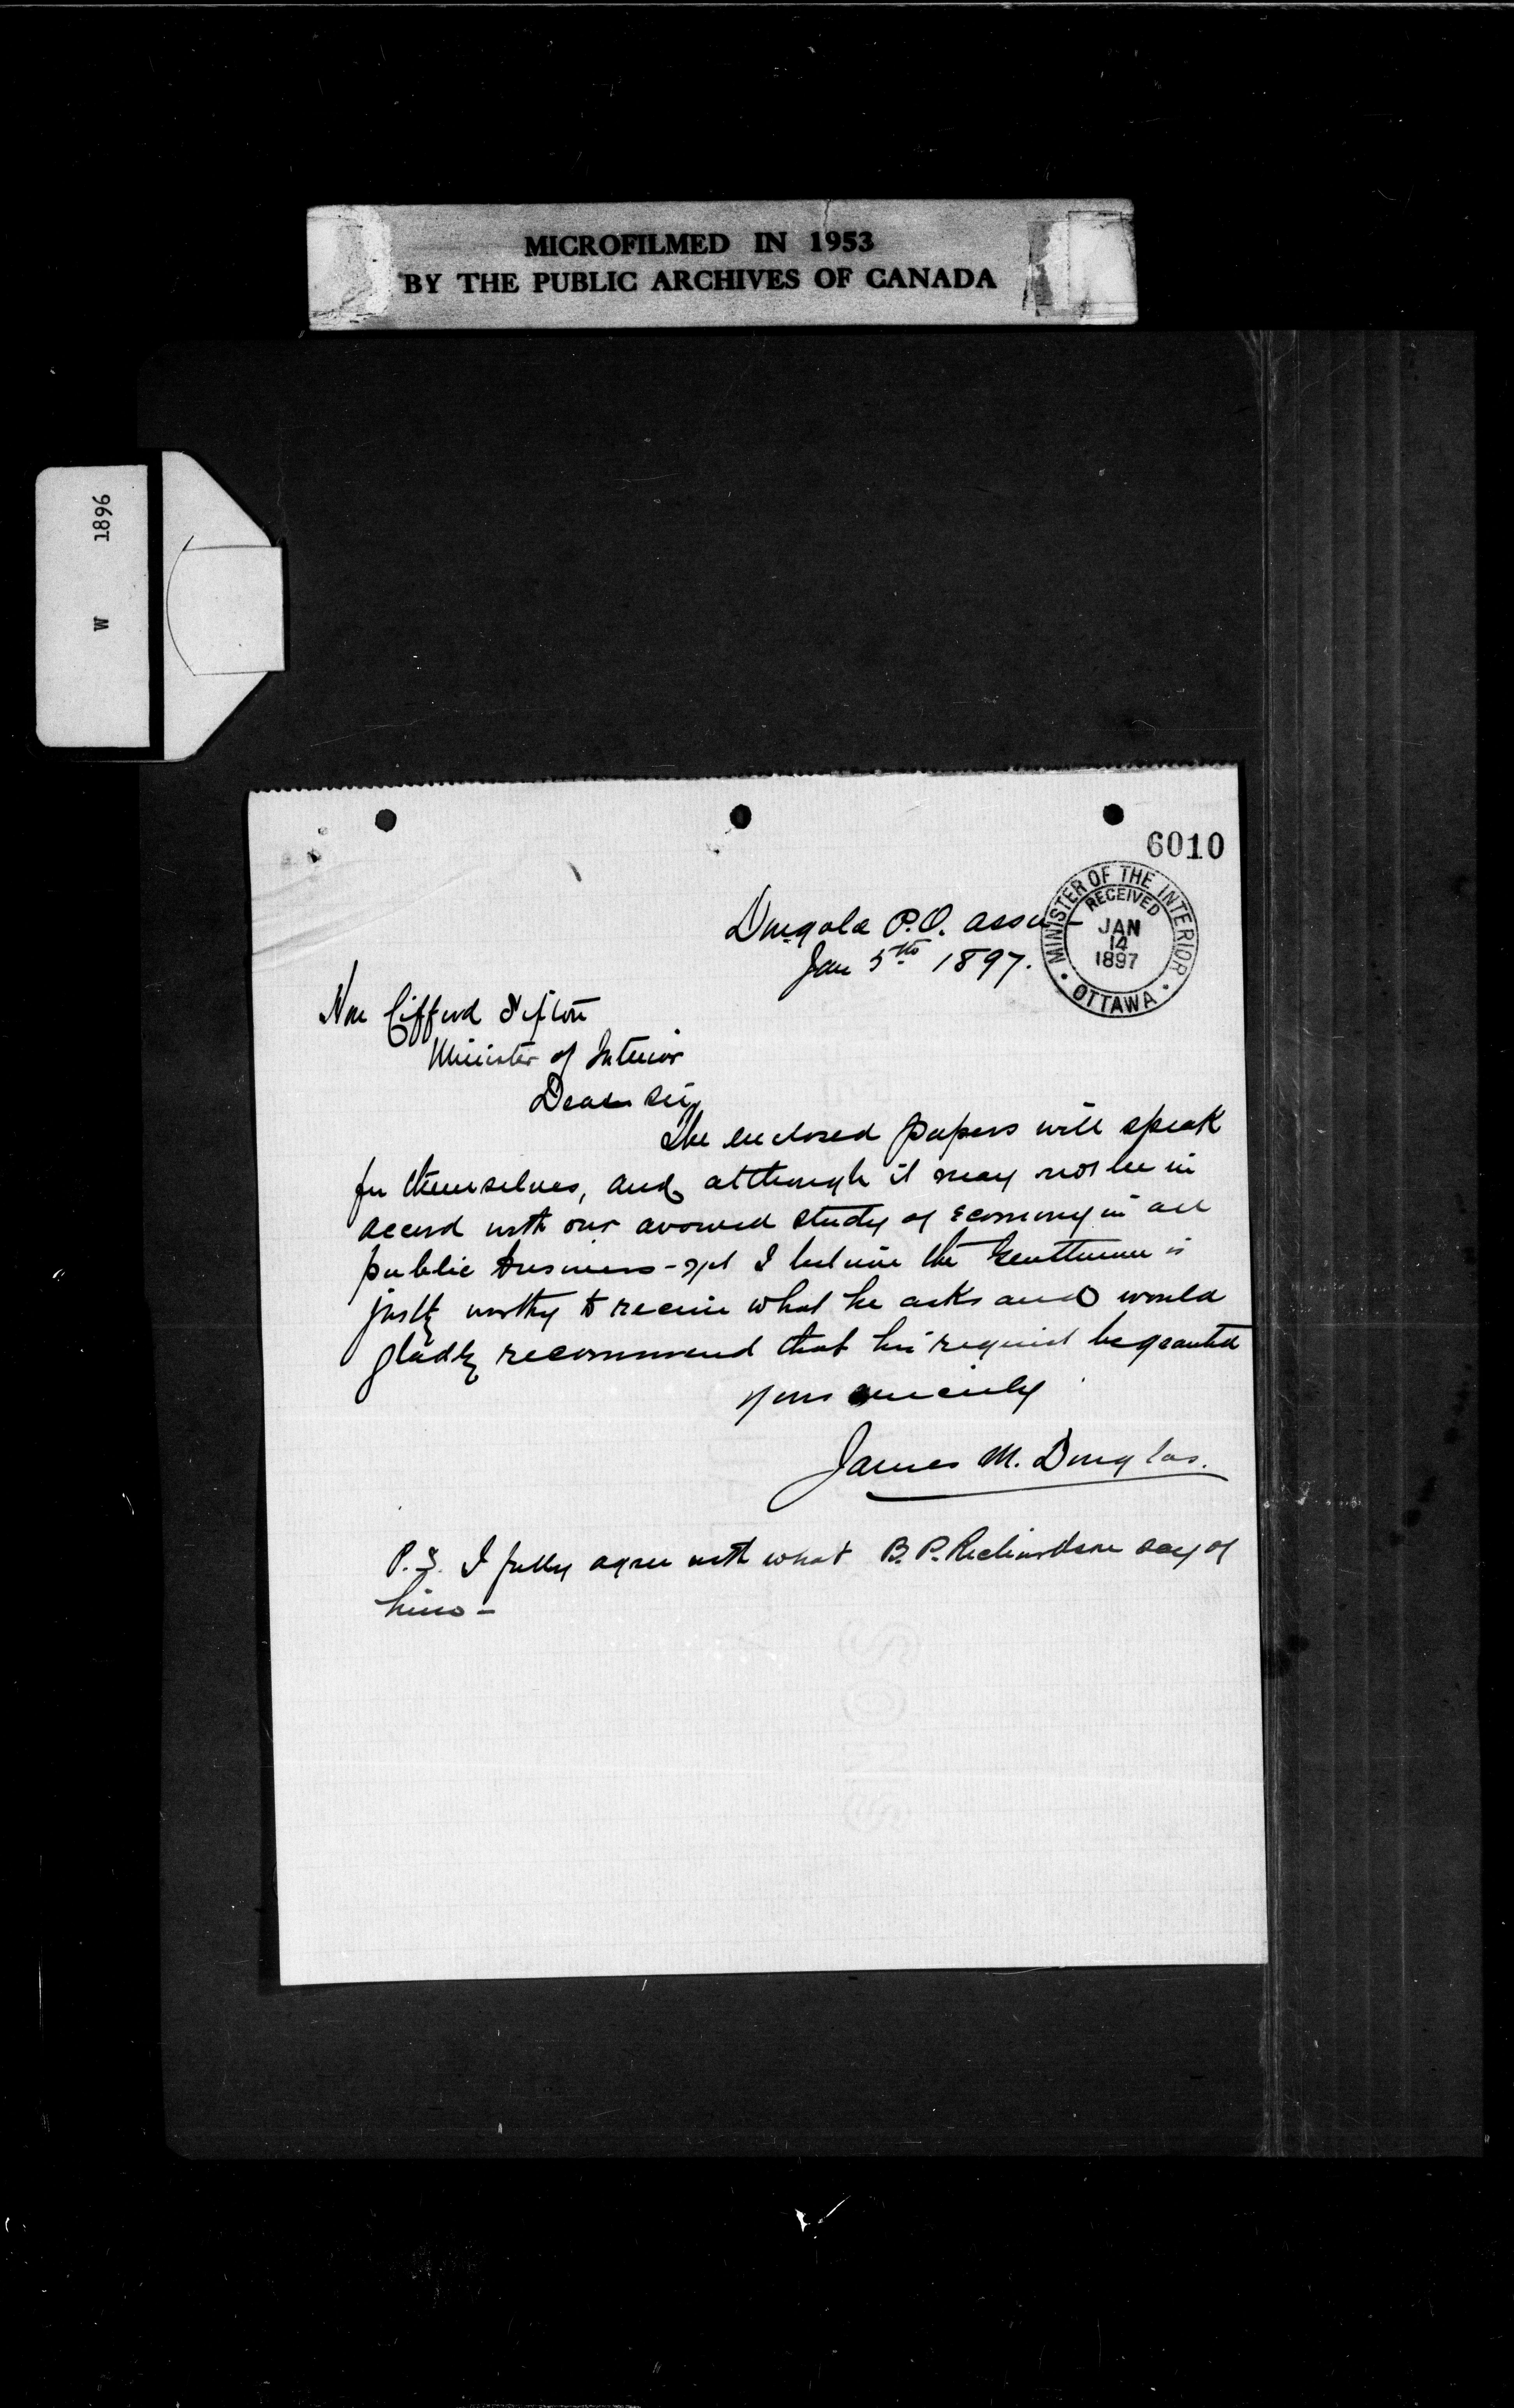 MICROFILMED IN 1953
BY THE PUBLIC ARCHIVES OF CANADA
W 1896
6010
MINISTER OF THE INTERIOR
RECEIVED
JAN
14
1897
OTTAWA
P.O. Assa
Jan 5th 1897.
Hon Clifford Sifton
Minister of Interior
Dear Sir
The enclosed papers will speak
for themselves, and although it may not be in
accord with our avowed study of economy in all
public business - yet I believe the gentleman is
justly worthy to receive what he asks and would
gladly recommend that his request be granted
Yours sincerely
James M. Douglas.
P.S. I fully agree with what B. P. Richardson say of
him -